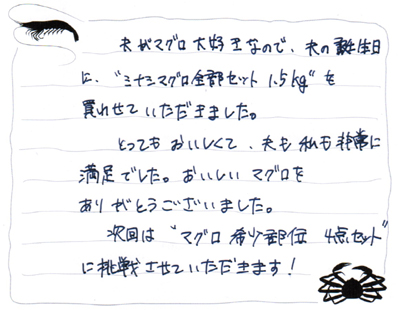 夫がマグロ大好きなので、夫の誕生日
に、"ミナミマグロ全部セット 1.5kg"を
買わせていただきました。
とってもおいしくて、夫も私も非常に
満足でした。おいしいマグロを
ありがとうございました。
次回は"マグロ希少部位 4点セット"
に挑戦させていただきます！